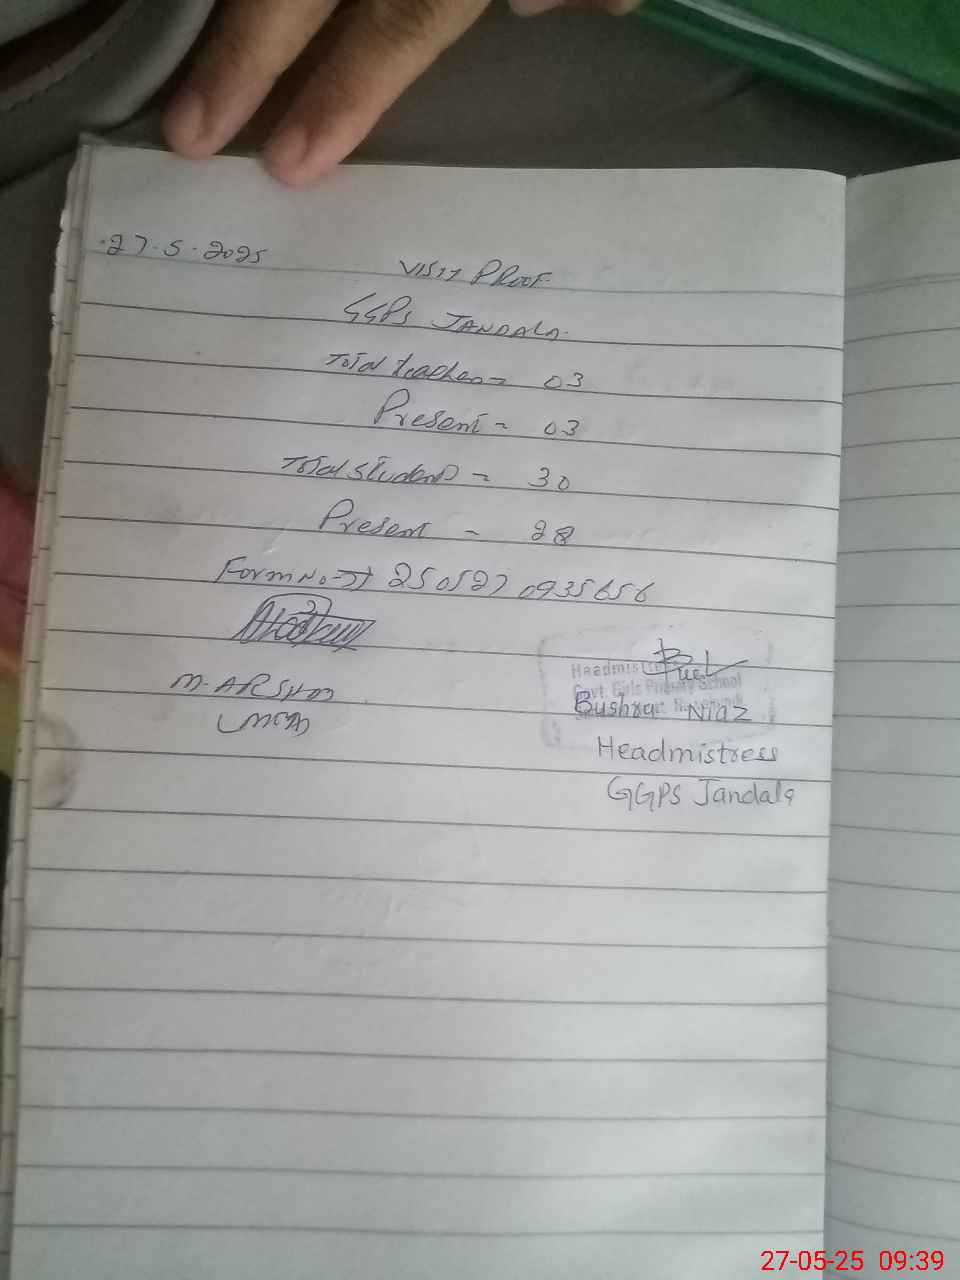 27.5.2025
VISIT PROOF
GGPS JANDALA.
Total teacher = 03
Present = 03
Total students = 30
Present - 28
Form No → 250527 0935656
M. ARSHAD
(MEA)
Headmistress
Govt. Girls Primary School
Bushra Niaz
Headmistress
GGPS Jandala
27-05-25 09:39